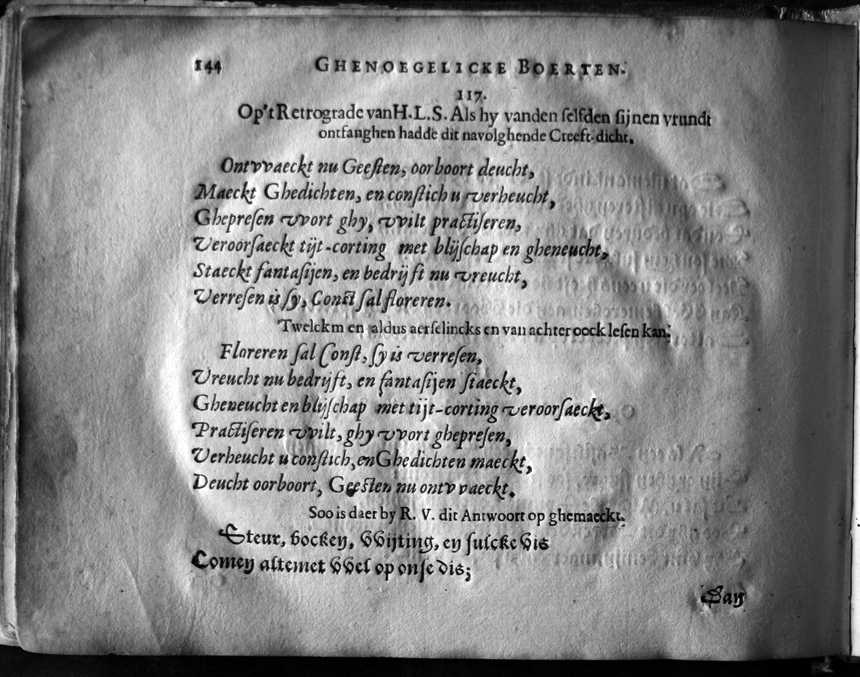 144 GHENOEGELICKE BOERTEN.
117.
Op't Retrograde van H.L.S. Als hy vanden selfden sijnen vrundt
ontfanghen hadde dit navolghende Creeft-dicht.
Ontvvaeckt nu Geesten, oorboort deucht,
Maeckt Ghedichten, en constich u verheucht,
Ghepresen vvort ghy, vvilt practiseren,
Veroorsaeckt tijt-corting met blijschap en gheneucht,
Staeckt fantasijen, en bedrijft nu vreucht,
Verresen is sy, Const sal floreren.
'Twelckm en aldus aerselincks en van achter oock lesen kan.
Floreren sal Const, sy is verresen,
Vreucht nu bedrijft, en fantasijen staeckt,
Gheneucht en blijschap met tijt-corting veroorsaeckt,
Practiseren vvilt, ghy vvort ghepresen,
Verheucht u constich, en Ghedichten maeckt,
Deucht oorboort, Geesten nu ontvvaeckt.
Soo is daer by R. V. dit Antwoort op ghemaeckt.
Steur, bocken, VVijting, en sulcke vis
Comen altemet VVel op onse dis;
Dan